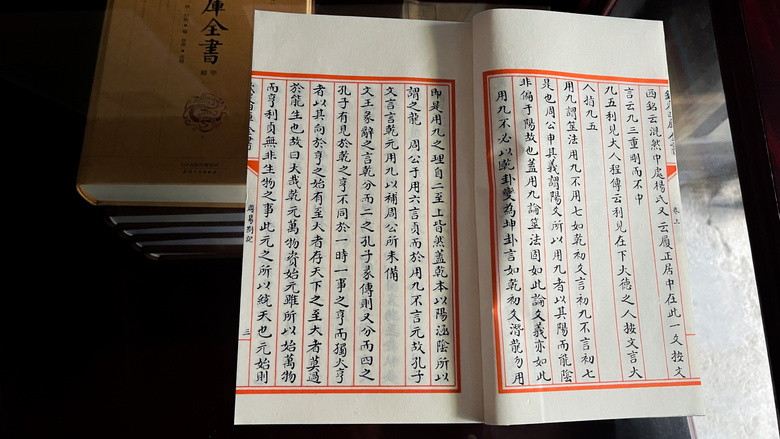 欽定四庫全書
卷上
西銘云混然中處楊氏又云履正居中在此一爻按文
言云九三重剛而不中
九五利見大人程傳云利見在下大德之人按文言大
人指九五
用九謂筮法用九不用七如乾初文言初九不言初七
是也周公申其義謂陽爻所以用九者以其陽而能陰
非偏于陽故也蓋用九論筮法固如此論爻義亦如此
用九不必以乾卦變為坤卦言如乾初爻潛龍勿用
即是用九之理自二至上皆然蓋乾本以陽涵陰所以
謂之龍 周公于用六言貞而於用九不言元故孔子
文言言乾元用九以補周公所未備
文王彖辭之言乾分而二之孔子彖傳則又分而四之
孔子有見於乾之亨不同於一時一事之亨而獨大亨
者以其向於亨之始有至大者存天下之至大者莫過
於能生也故曰大哉乾元萬物資始元雖所以始萬物
而亨利貞無非生物之事此元之所以統天也元始則
周易劄記
三
庫全書